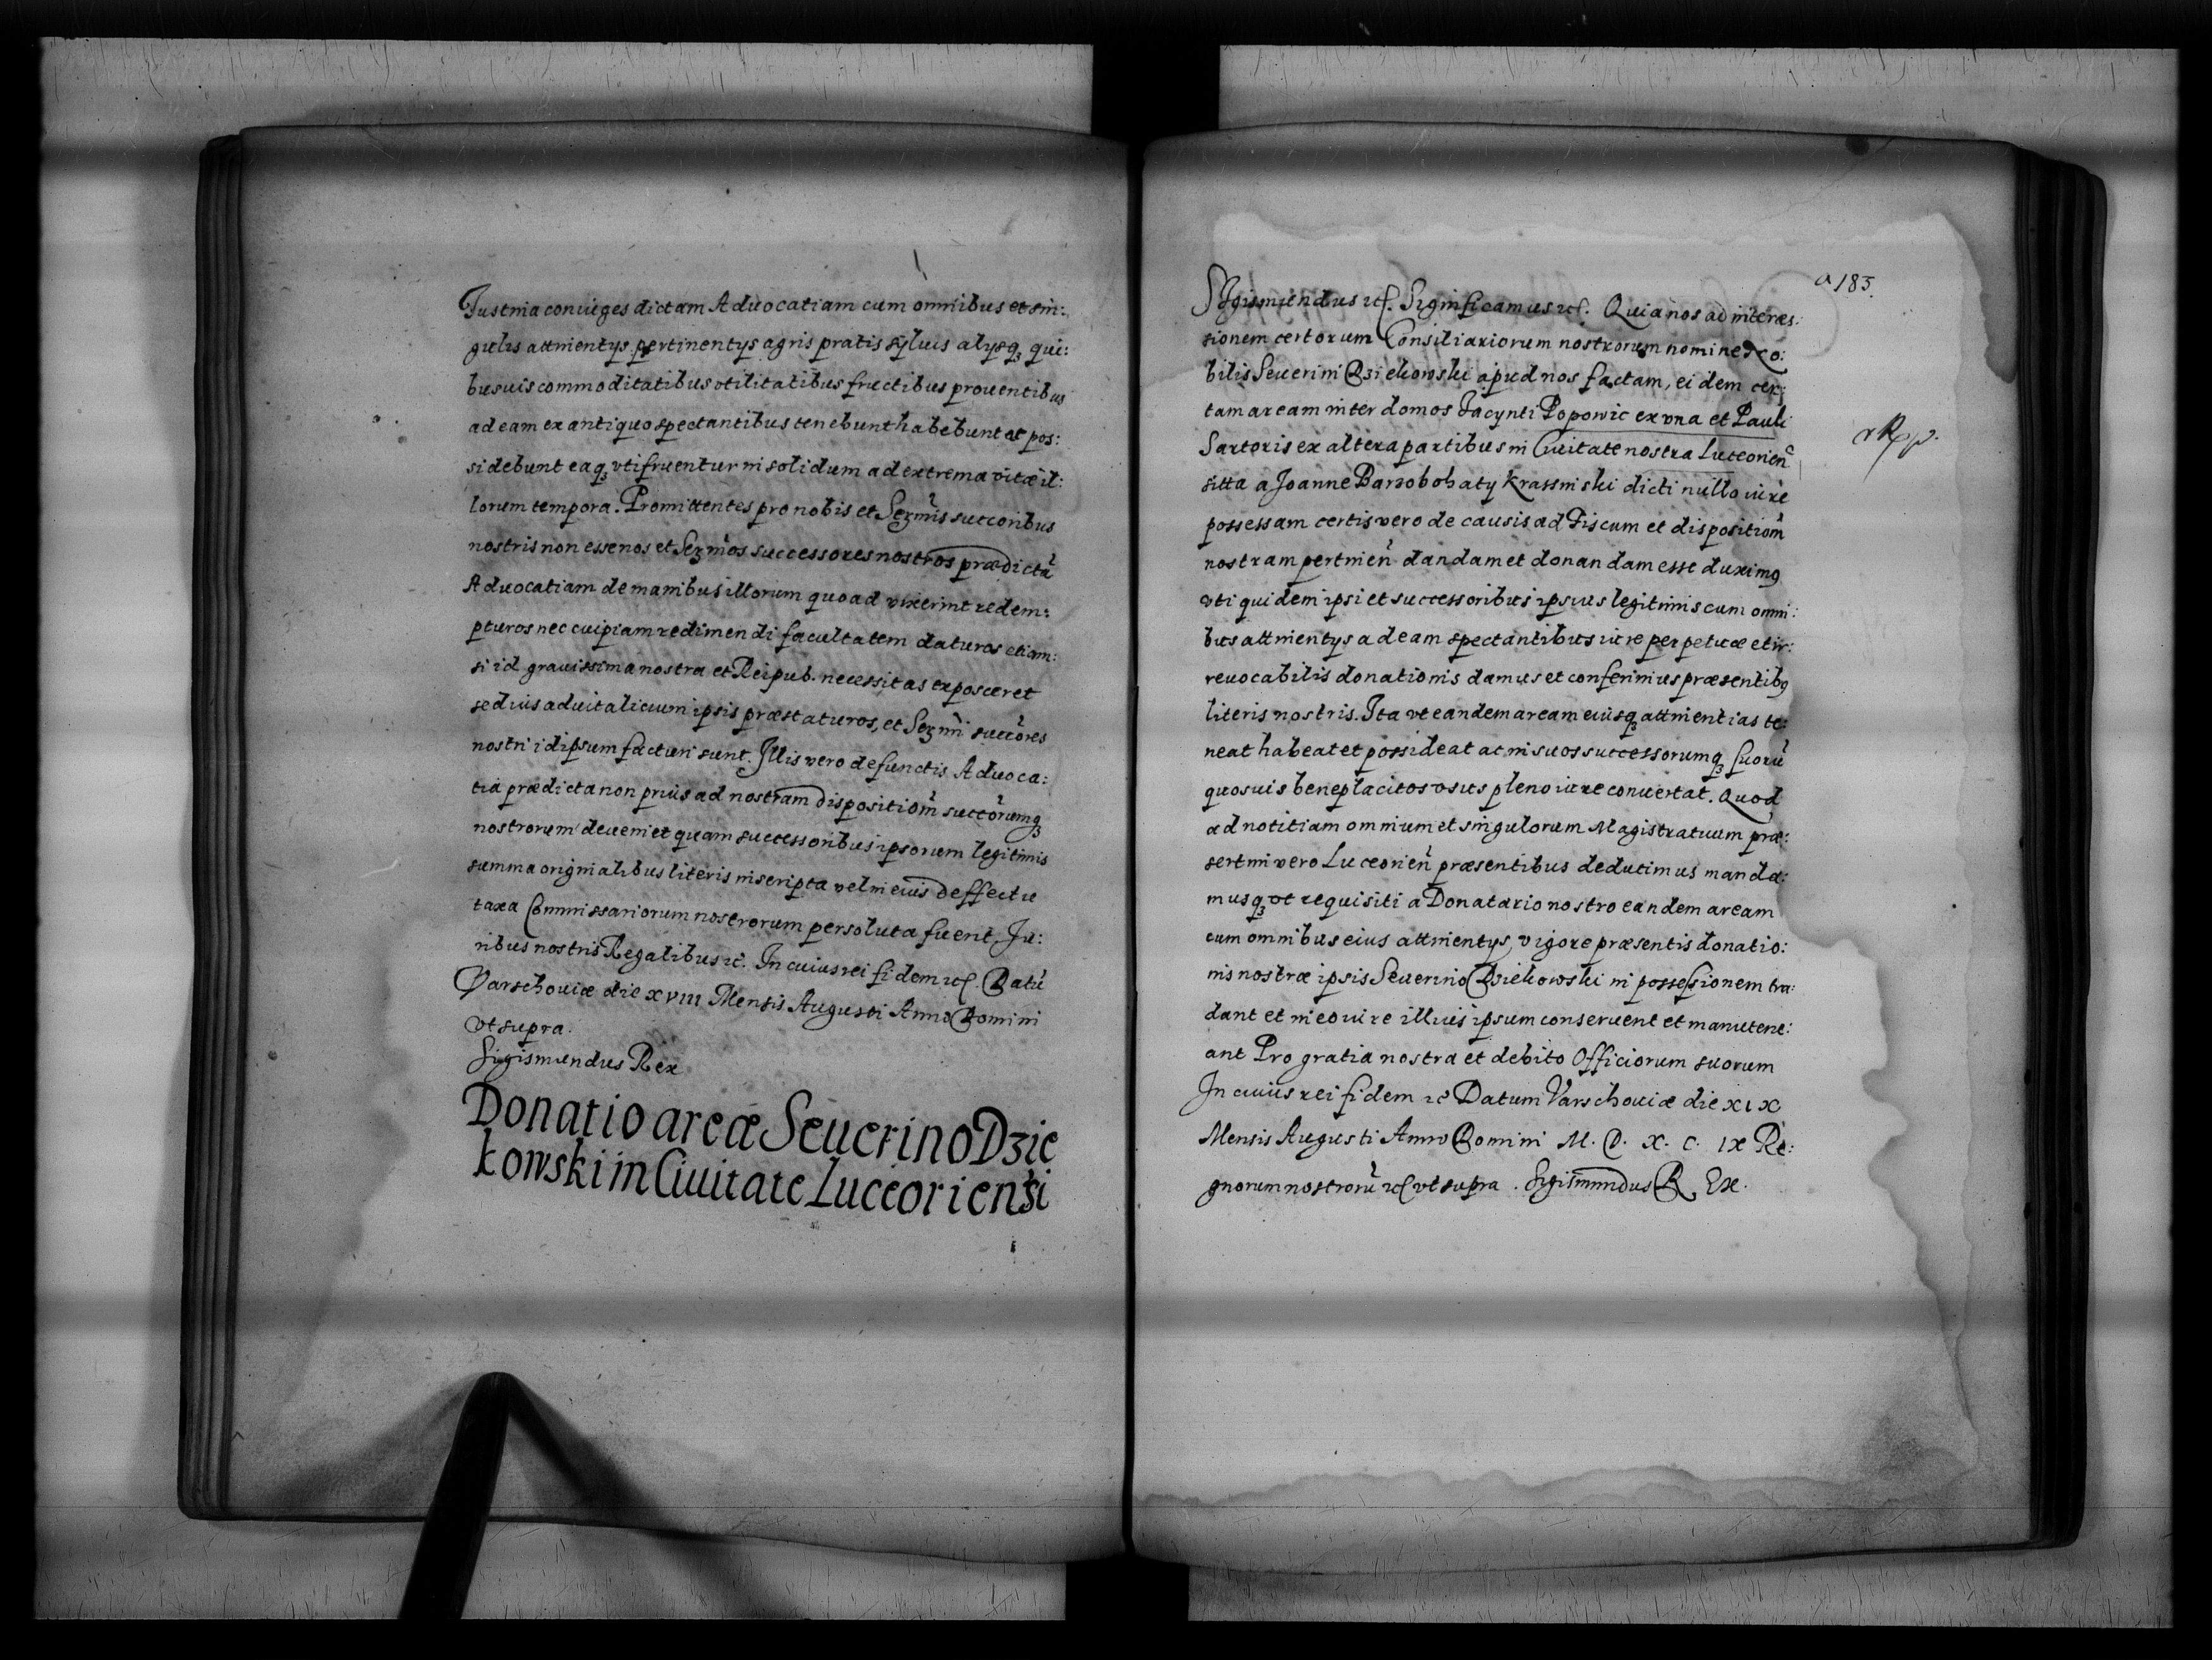 Justina coniuges dictam Aduocatiam cum omnibus et sin:
gulis attinentys pertinentys agris pratis syluis alysq3 qui:
busuis commoditatibus vtilitatibus fructibus prouentibus
ad eam ex antiquo spectantibus tenebunt habebunt et pos:
sidebunt eaq3 vti fruentur in solidum ad extrema vitæ il:
lorum tempora. Promittentes pro nobis et Sermis succoribus
nostris non esse nos et Sermos successores nostros prædictã
Aduocatiam de manibus illorum quoad vixerint redem:
pturos nec cuipiam redimendi facultatem daturos etiam:
si id grauissima nostra et Reipub. necessitas exposceret
sed ius aduitalicium ipsis præstaturos, et Sermi succores
nostri idipsum facturi sunt. Illis vero defunctis Aduoca:
tia prædicta non prius ad nostram dispositiom succorumq3
nostrorum deueniet quam successoribus ipsorum legitimis
summa originalibus literis inscripta vel in eius deffectu
taxa Commissariorum nostrorum persoluta fuerit, Ju:
ribus nostris Regalibus etc. In cuius rei fidem etc. Datũ
Varschouiæ die XVIII Mensis Augusti Anno Domini
vt supra.
Sigismundus Rex
Donatio areæ Seuerino Dzie
kowski in Ciuitate Luceoriensi
a 183.
Sigismundus etc. Significamus etc. Quia nos ad interces:
sionem certorum Consiliariorum nostrorum nomine No:
bilis Seuerini Dziekowski apud nos factam, eidem cer:
tam aream inter domos Jacynti Popowic ex vna et Pauli
Sartoris ex altera partibus in Ciuitate nostra Luceorien̄
sitta a Joanne Barzobohaty Krassinski dicti nullo iure
possessam certis vero de causis ad Fiscum et dispositiom
nostram pertinen̄ dandam et donandam esse duxim9
vti quidem ipsi et successoribus ipsius legitimis cum omni:
bus attinentys ad eam spectantibus iure perpetuæ et ir:
reuocabilis donationis damus et conferimus præsentib9
literis nostris. Ita vt eandem aream eiusq3 attinentias te:
neat habeat et possideat ac in suos successorumq3 suorũ
quosuis beneplacitos vsus pleno iure conuertat. Quod
ad notitiam omnium et singulorum Magistratuum præ:
sertim vero Luceorien̄ præsentibus deducimus manda:
musq3 vt requisiti a Donatario nostro eandem aream
cum omnibus eius attinentys, vigore præsentis donatio:
nis nostræ ipsis Seuerino Dziekowski in possessionem tra:
dant et in eo iure illius ipsum conseruent et manutene:
ant Pro gratia nostra et debito Officiorum suorum
In cuius rei fidem etc Datum Varschouiæ die XIX
Mensis Augusti Anno Domini M. D. X. C. IX Re:
gnorum nostrorũ etc vt supra. Sigismundus R Ex.